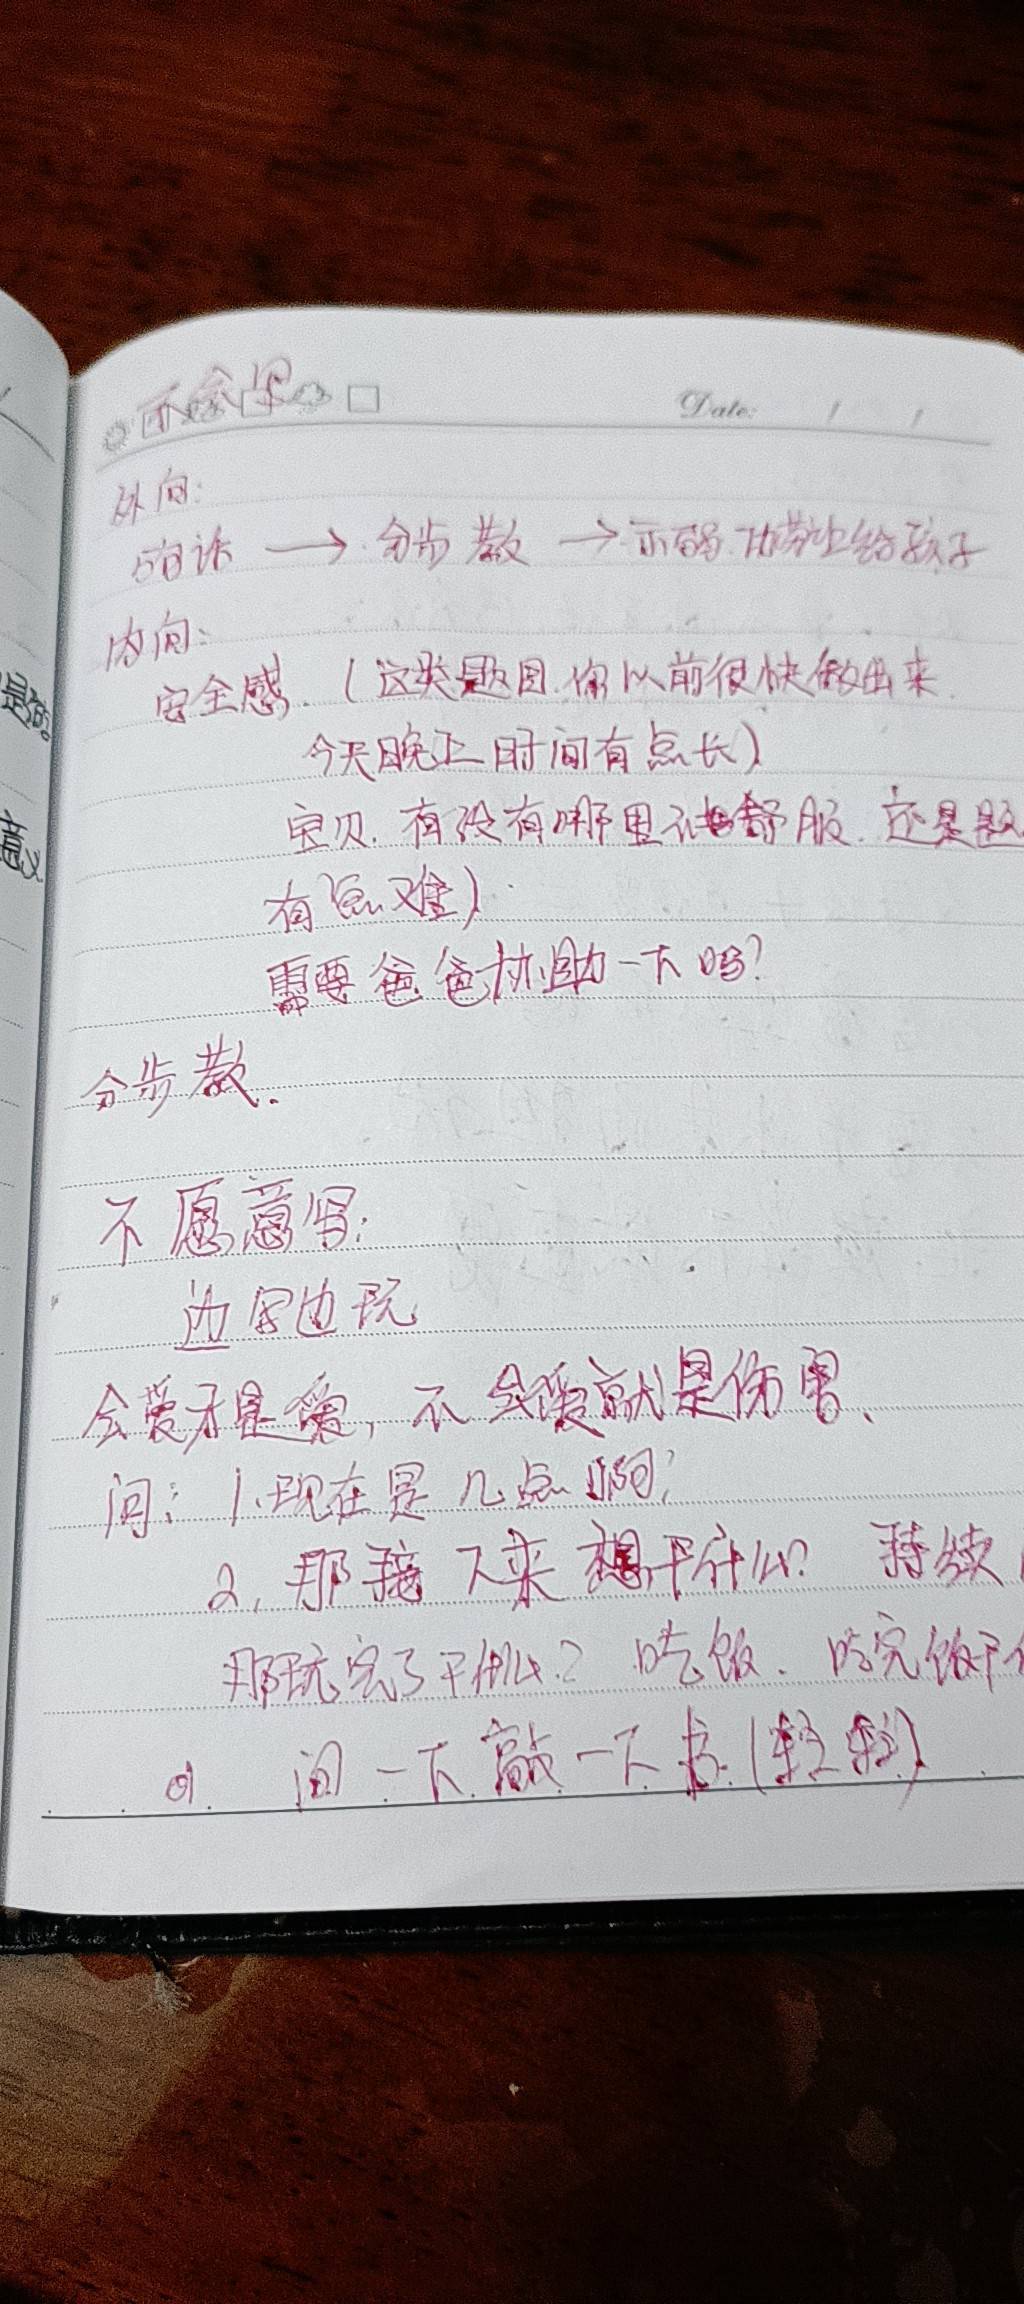 不会写
Date: / /
外向:
师话 → 分步教 → 示弱.功劳让给孩子
内向:
安全感.(这类题目.你以前很快做出来.
今天晚上时间有点长)
宝贝.有没有哪里不舒服.还是题
有点难)
需要爸爸协助一下吗?
分步教.
不愿意写:
边写边玩
会爱才是爱,不会爱就是伤害、
问: 1.现在是几点啊?
2.那接下来想干什么? 持续
那玩完了干什么? 吃饭. 吃完饭干
问一下敲一下书.(轻轻)
是
意义